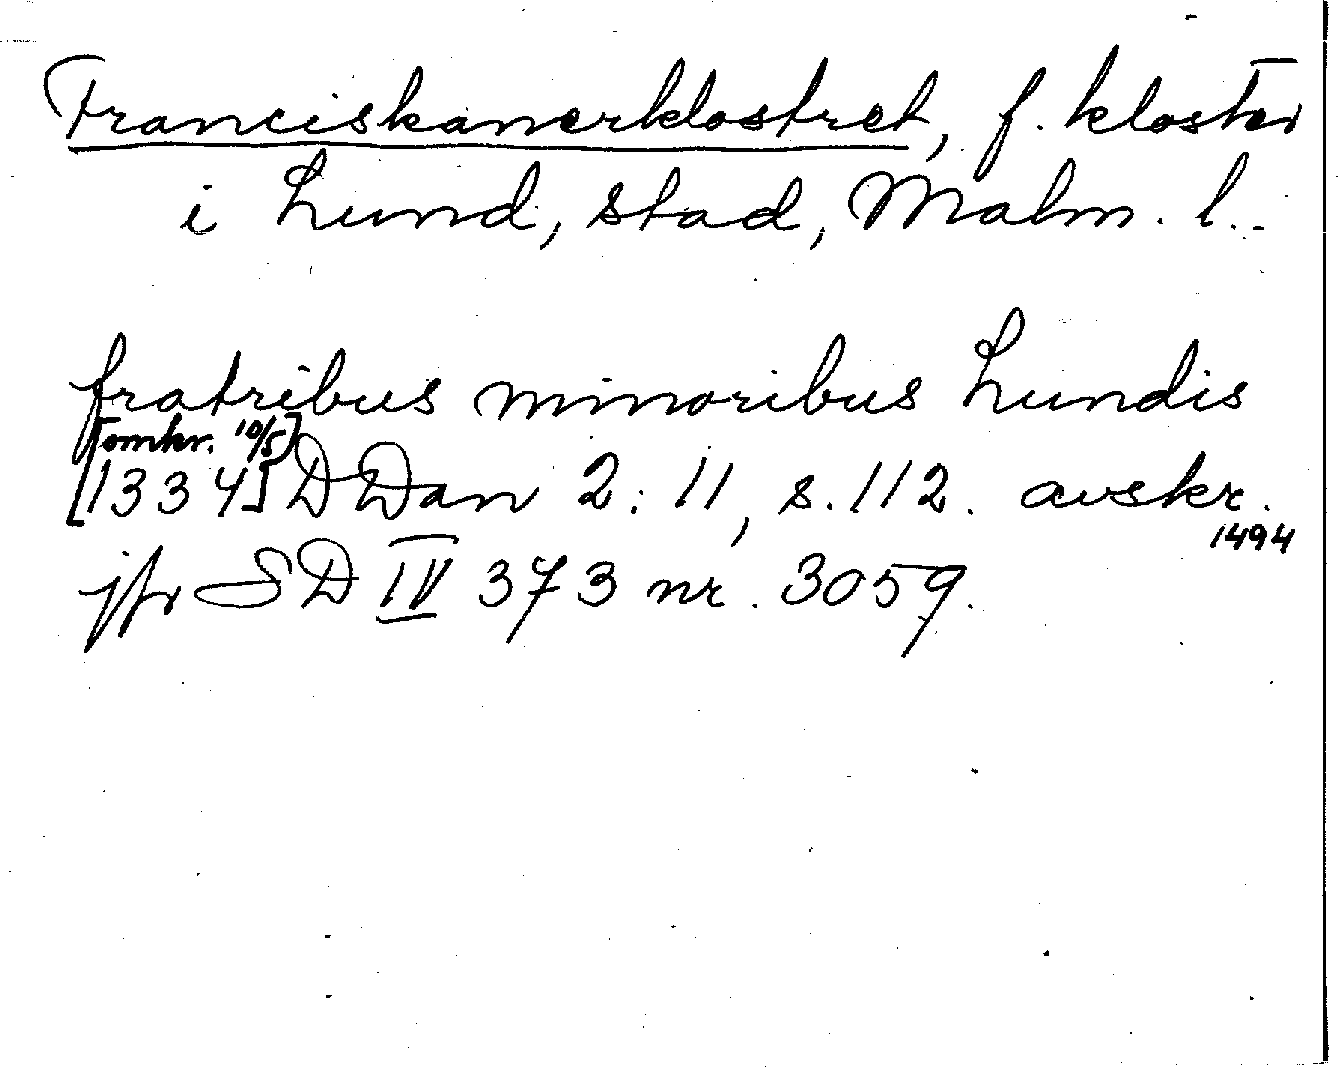 Franciskanerklostret, f. kloster
i Lund, stad, Malm. l.
fratribus minoribus Lundis
[omkr. 10/5]
[1334] DDan 2:11, s. 112. avskr.
1494
jfr SD IV 373 nr. 3059.